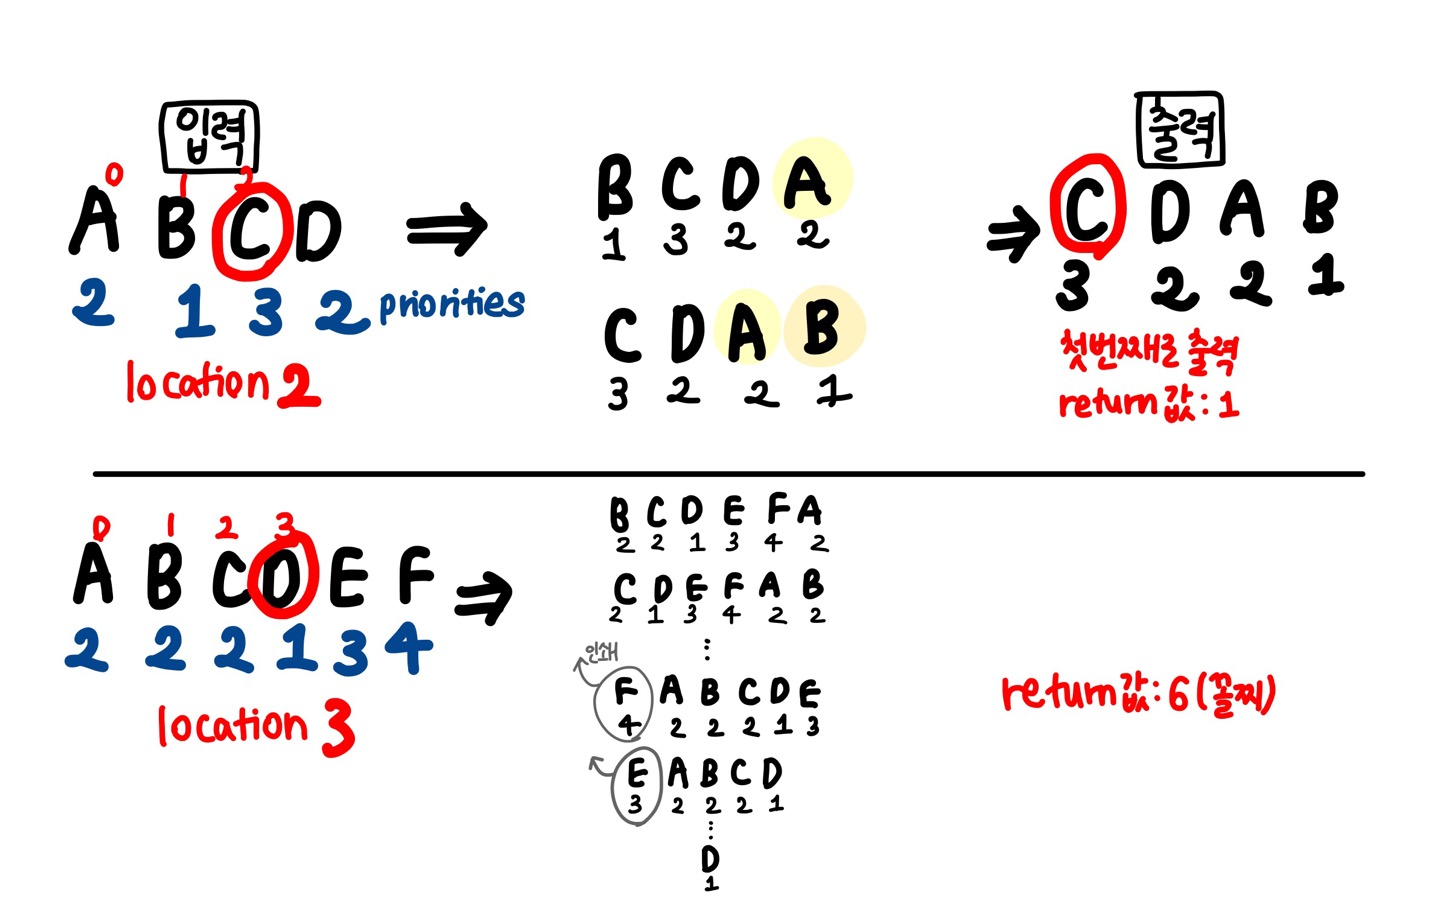 입력
0 1 2
A B C D
2 1 3 2 priorities
location 2
⇒
B C D A
1 3 2 2
C D A B
3 2 2 1
⇒
출력
C D A B
3 2 2 1
첫번째로 출력
return값 : 1
0 1 2 3
A B C D E F
2 2 2 1 3 4
location 3
⇒
B C D E F A
2 2 1 3 4 2
C D E F A B
2 1 3 4 2 2
⋮
인쇄
F A B C D E
4 2 2 2 1 3
E A B C D
3 2 2 2 1
⋮
D
1
return값 : 6 (꼴찌)